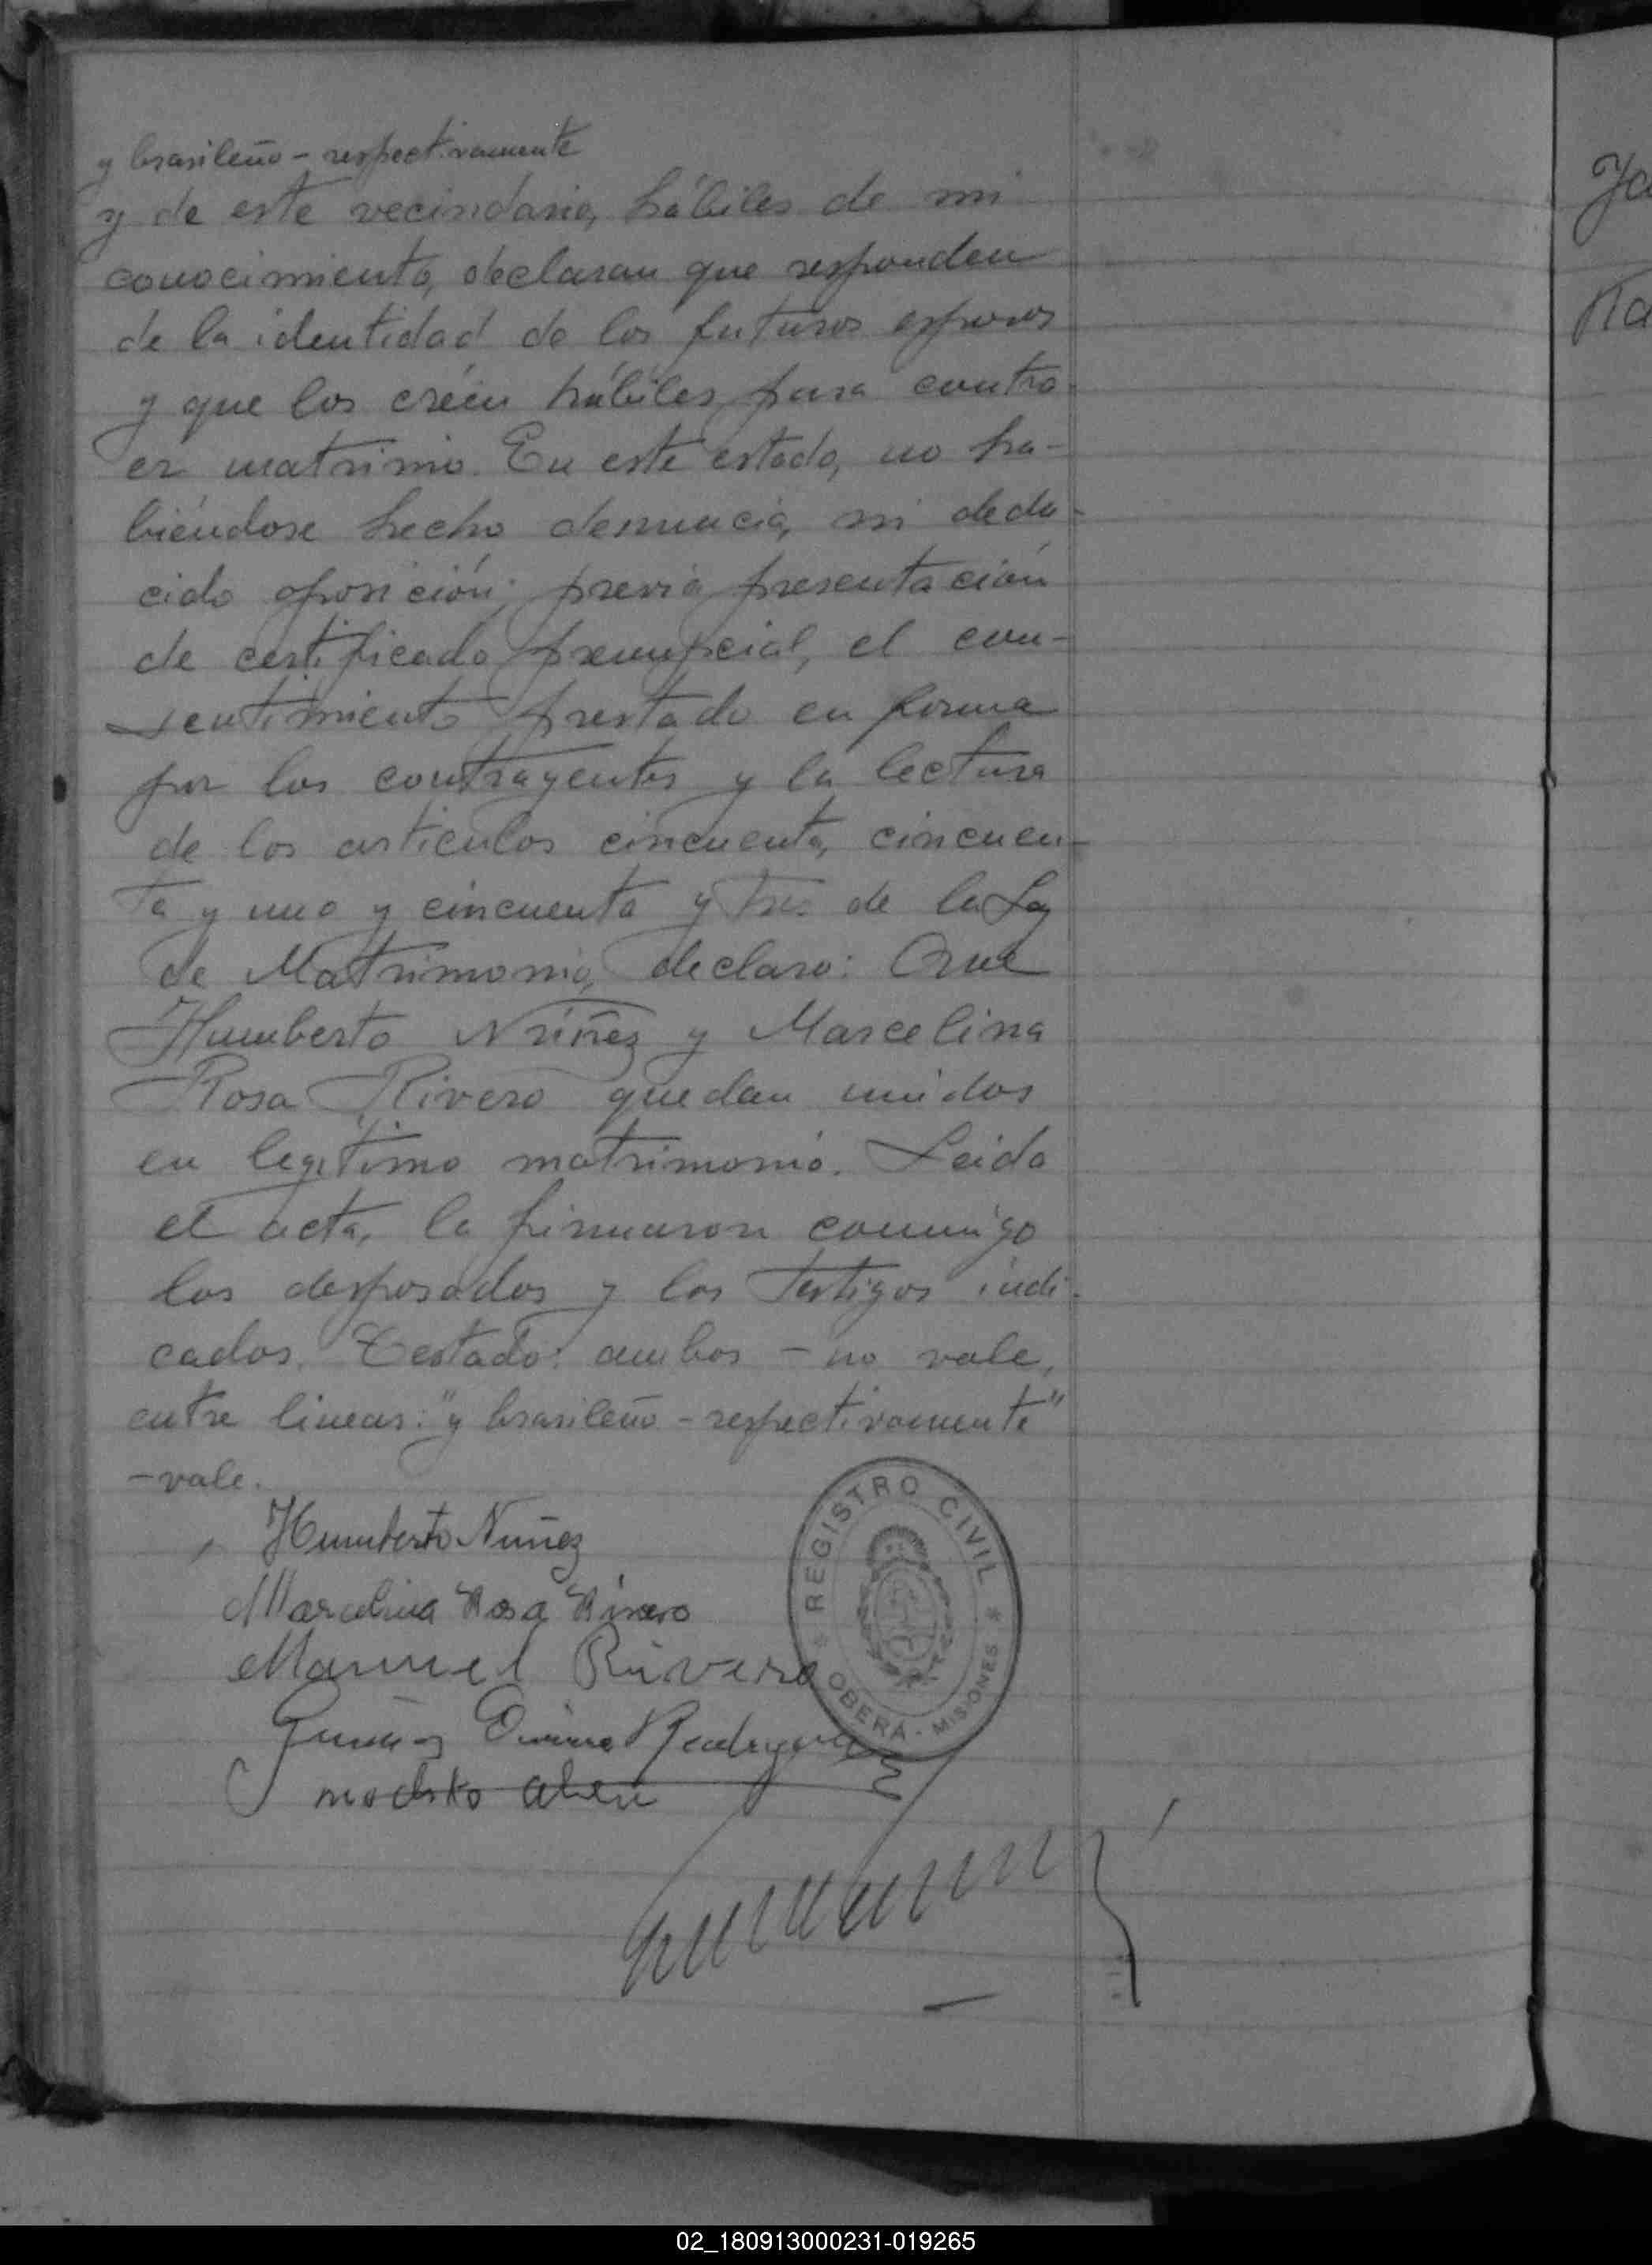 y brasileño - respectivamente
y de este vecindario, hábiles de mi
conocimiento, declaran que responden
de la identidad de los futuros esposos
y que los créen hábiles para contra-
er matrimio. En este estado, no ha-
biéndose hecho denuncia, ni dedu-
cido oposición; previa presentación
de certificado prenupcial, el con-
sentimiento prestado en forma
por los contrayentes y la lectura
de los articulos cincuenta, cincuen-
ta y uno y cincuenta y tres de la Ley
de Matrimonio, declaro: Que
Humberto Núñez y Marcelina
Rosa Rivero quedan unidos
en legítimo matrimonio. Leida
el acta, la firmaron conmigo
los desposados y los testigos indi-
cados. Testado: ambos - no vale,
entre lineas: "y brasileño - respectivamente"
- vale.
Humberto Nuñez
Marcelina Rosa Rivero
Manuel Rivero
Rodriguez
modesto
REGISTRO CIVIL
OBERÁ - MISIONES
Ja
Na
02_180913000231-019265